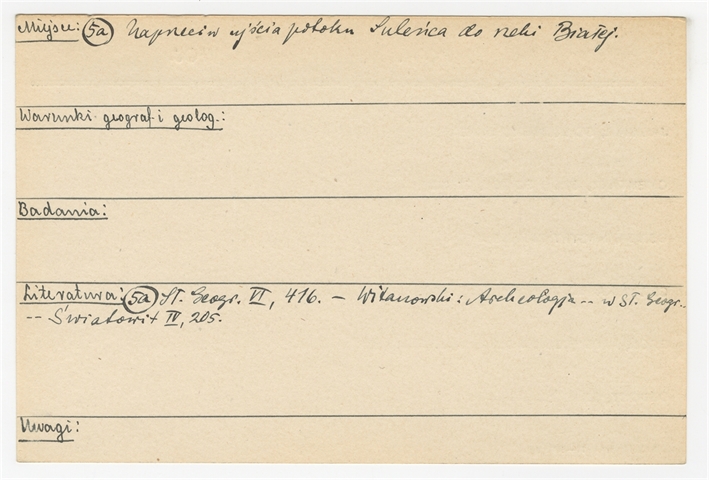 Miejsce: 5a Naprzeciw ujścia potoku Suleńca do rzeki Białej.
Warunki geograf. i geolog.:
Badania:
Literatura: 5a Sł. Geogr. VI, 416. – Witanowski: Archeologja -- w Sł. Geogr. --
-- Światowit IV, 205.
Uwagi: